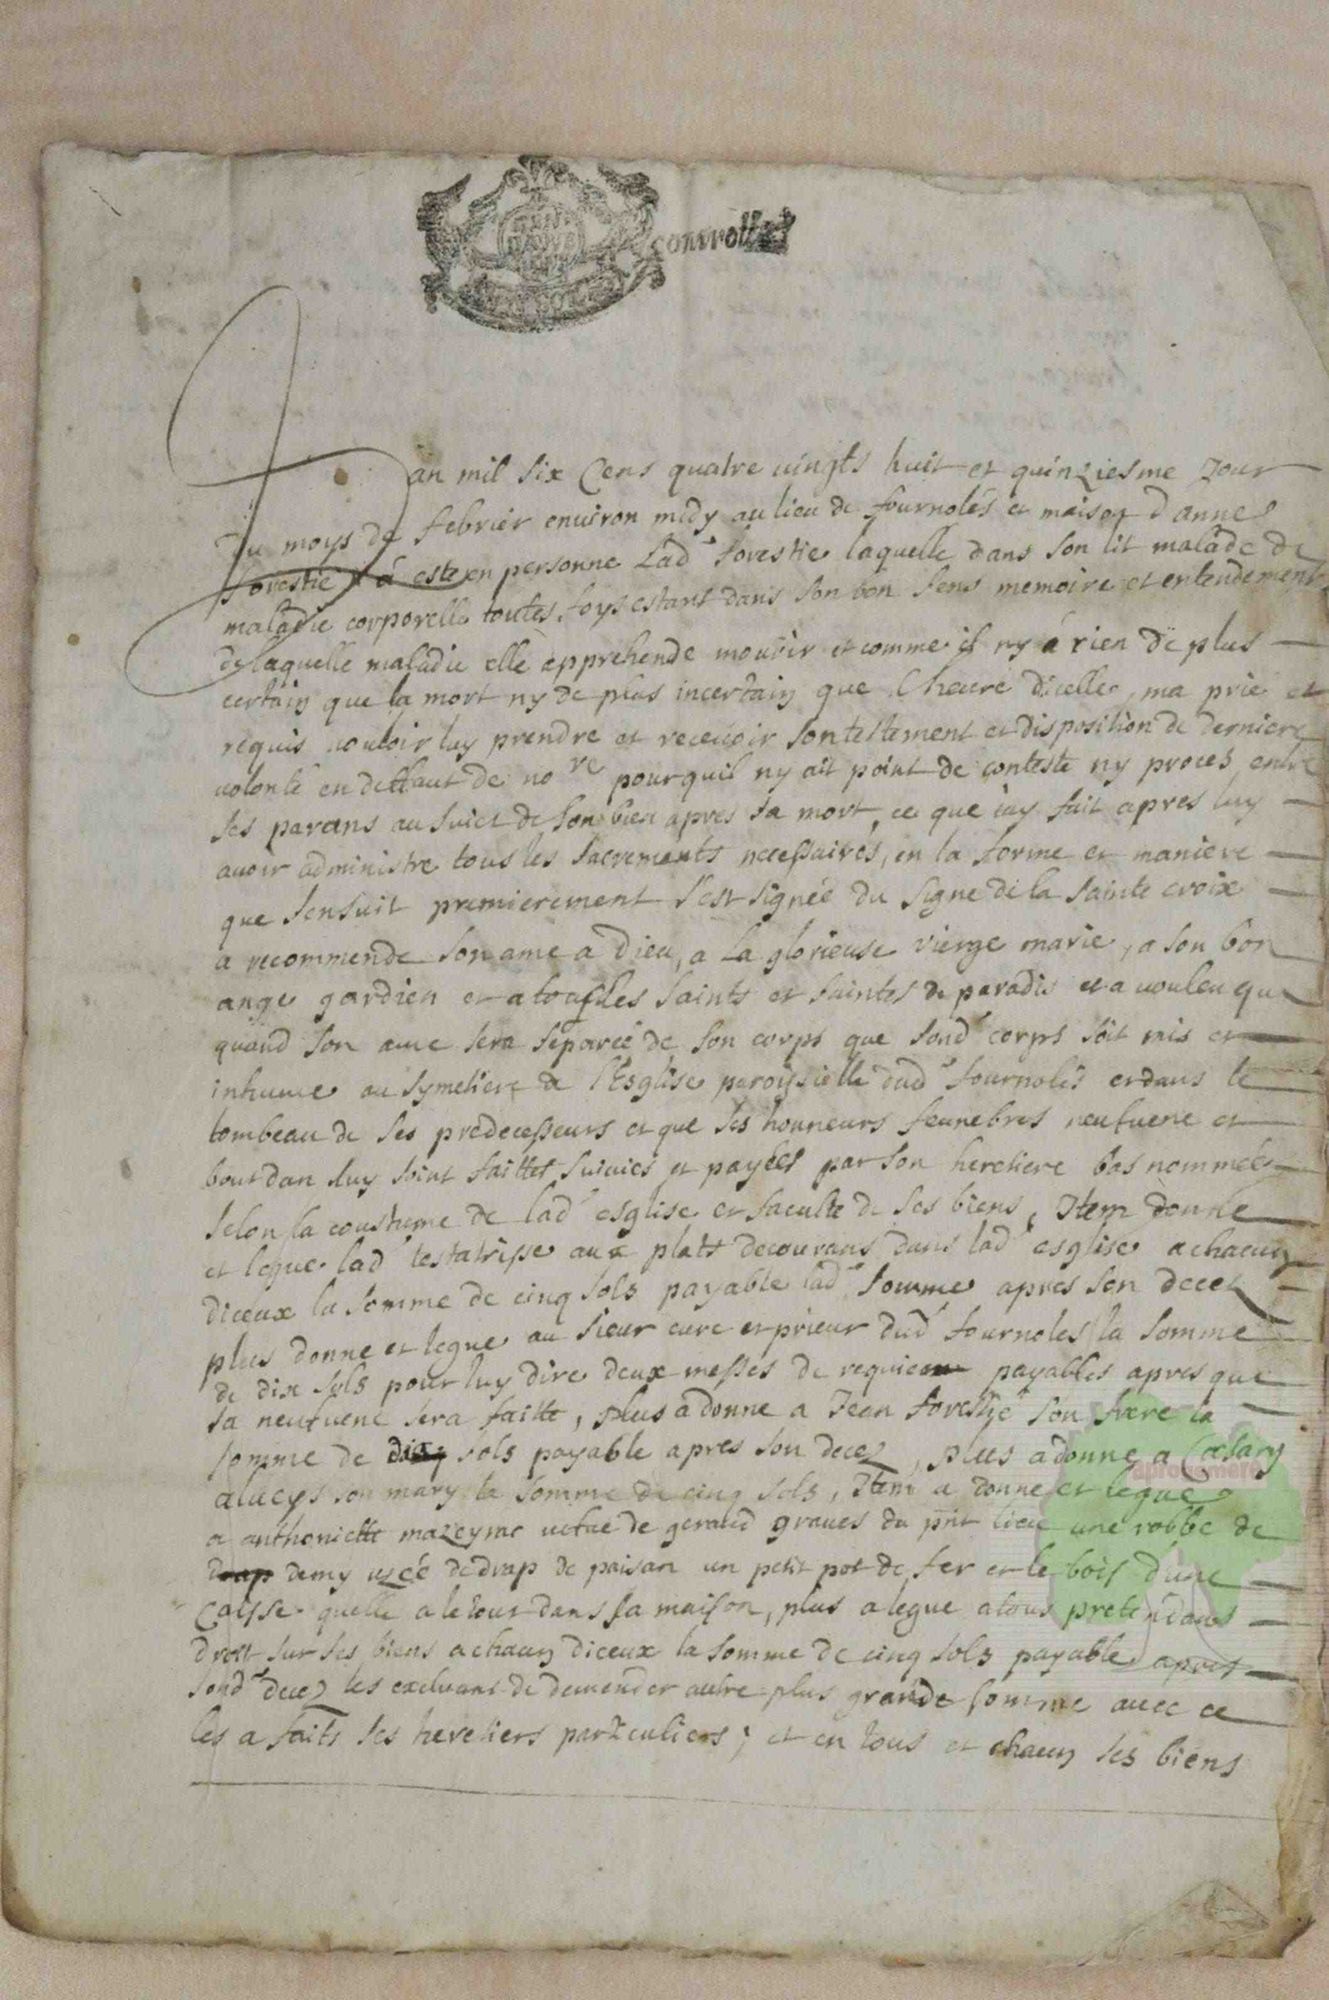 controlle
L'an mil six Cens quatre vingts huit et quinziesme Jour
du moys de febrier environ midy au lieu de fournolés et maison d'anne
forestie a esté en personne Lad forestie laquelle dans son lit malade de
maladie corporelle toutes foys estant dans son bon sens memoire et entendement
de laquelle maladie elle apprehende mourir et comme il ny a rien de plus
certain que la mort ny de plus incertain que lheure dicelle, ma prié et
requis vouloir luy prendre et recevoir son testement et disposition de derniere
volonté en deffaut de no re pourquil ny ait point de conteste ny proces entre
ses parans au suict de son bien apres sa mort, ce que iay fait apres luy
avoir administre tous les sacrements necessaires, en la forme et maniere
que sensuit premierement s'est signée du signe de la sainte croix
a recommende son ame a Dieu, a La glorieuse vierge marie, a son bon
ange gardien et a tous les saints et saintes de paradis et a vouleu que
quand son ame sera separée de son corps que sond corps soit mis et
inhume au symetiere de l'Esglise paroissielle dud fournolés et dans le
tombeau de ses predecesseurs et que ses honneurs feunebres neufvene et
bout dan luy soint faittes suivies et payées par son heretiere bas nommée
selon la coustume de lad esglise et faculte de ses biens, Item donne
et legue lad testatrisse aux plats decourans dans lad esglise a chacun
diceux la somme de cinq sols payable lad somme apres son decez
plus donne et legue au sieur curé et prieur dud fournoles la somme
de dix sols pour luy dire deux messes de requiem payables apres que
sa neufvene sera faitte, plus a donne a Jean forestie son frere la
somme de sols payable apres son decez, plus a donne a
son mary la somme de cinq sols, Item a donne et legue
a anthoniette mazeyrac vefve de geraud graves du pnt lieu une robbe de
drap demy usée de drap de paisan un petit pot de fer et le bois d'une
Caisse quelle a le tout dans sa maison, plus a legue a tous pretendans
droit sur ses biens a chacun diceux la somme de cinq sols payable apres
sond decez les excluant de demender autre plus grande somme avec ce
les a faits ses heretiers particuliers; et en tous et chacun ses biens